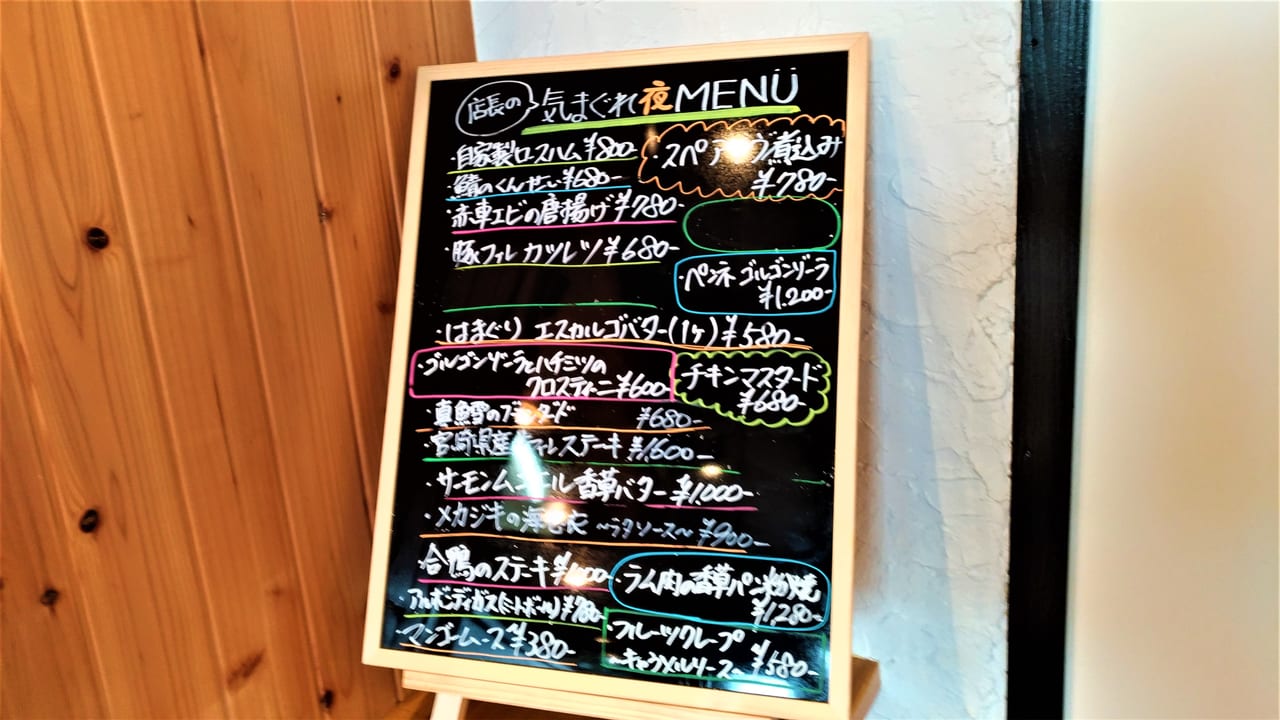 店長の 気まぐれ夜MENÜ
・自家製ロースハム¥800-
・鯖のくんせい¥680-
・赤車エビの唐揚げ¥780-
・豚フィレカツレツ¥680-
・スペア 煮込み
¥780-
・ペンネ ゴルゴンゾーラ
¥1,200-
・はまぐり エスカルゴバター(1ヶ)¥580-
・ゴルゴンゾーラとハチミツの
クロスティーニ¥600-
チキンマスタード
¥680-
・真鱈の ¥680-
・宮崎県産 フィレステーキ ¥1,600-
・サーモンム エル香草バター¥1,000-
・メカジキの ~ラタソース~ ¥900-
合鴨のステーキ
・ラム肉の香草パン粉焼
¥1,280-
・アルボンディガス(ミートボール)¥780-
・マンゴームース¥380-
・フルーツクレープ
~キャラメルソース~ ¥580-